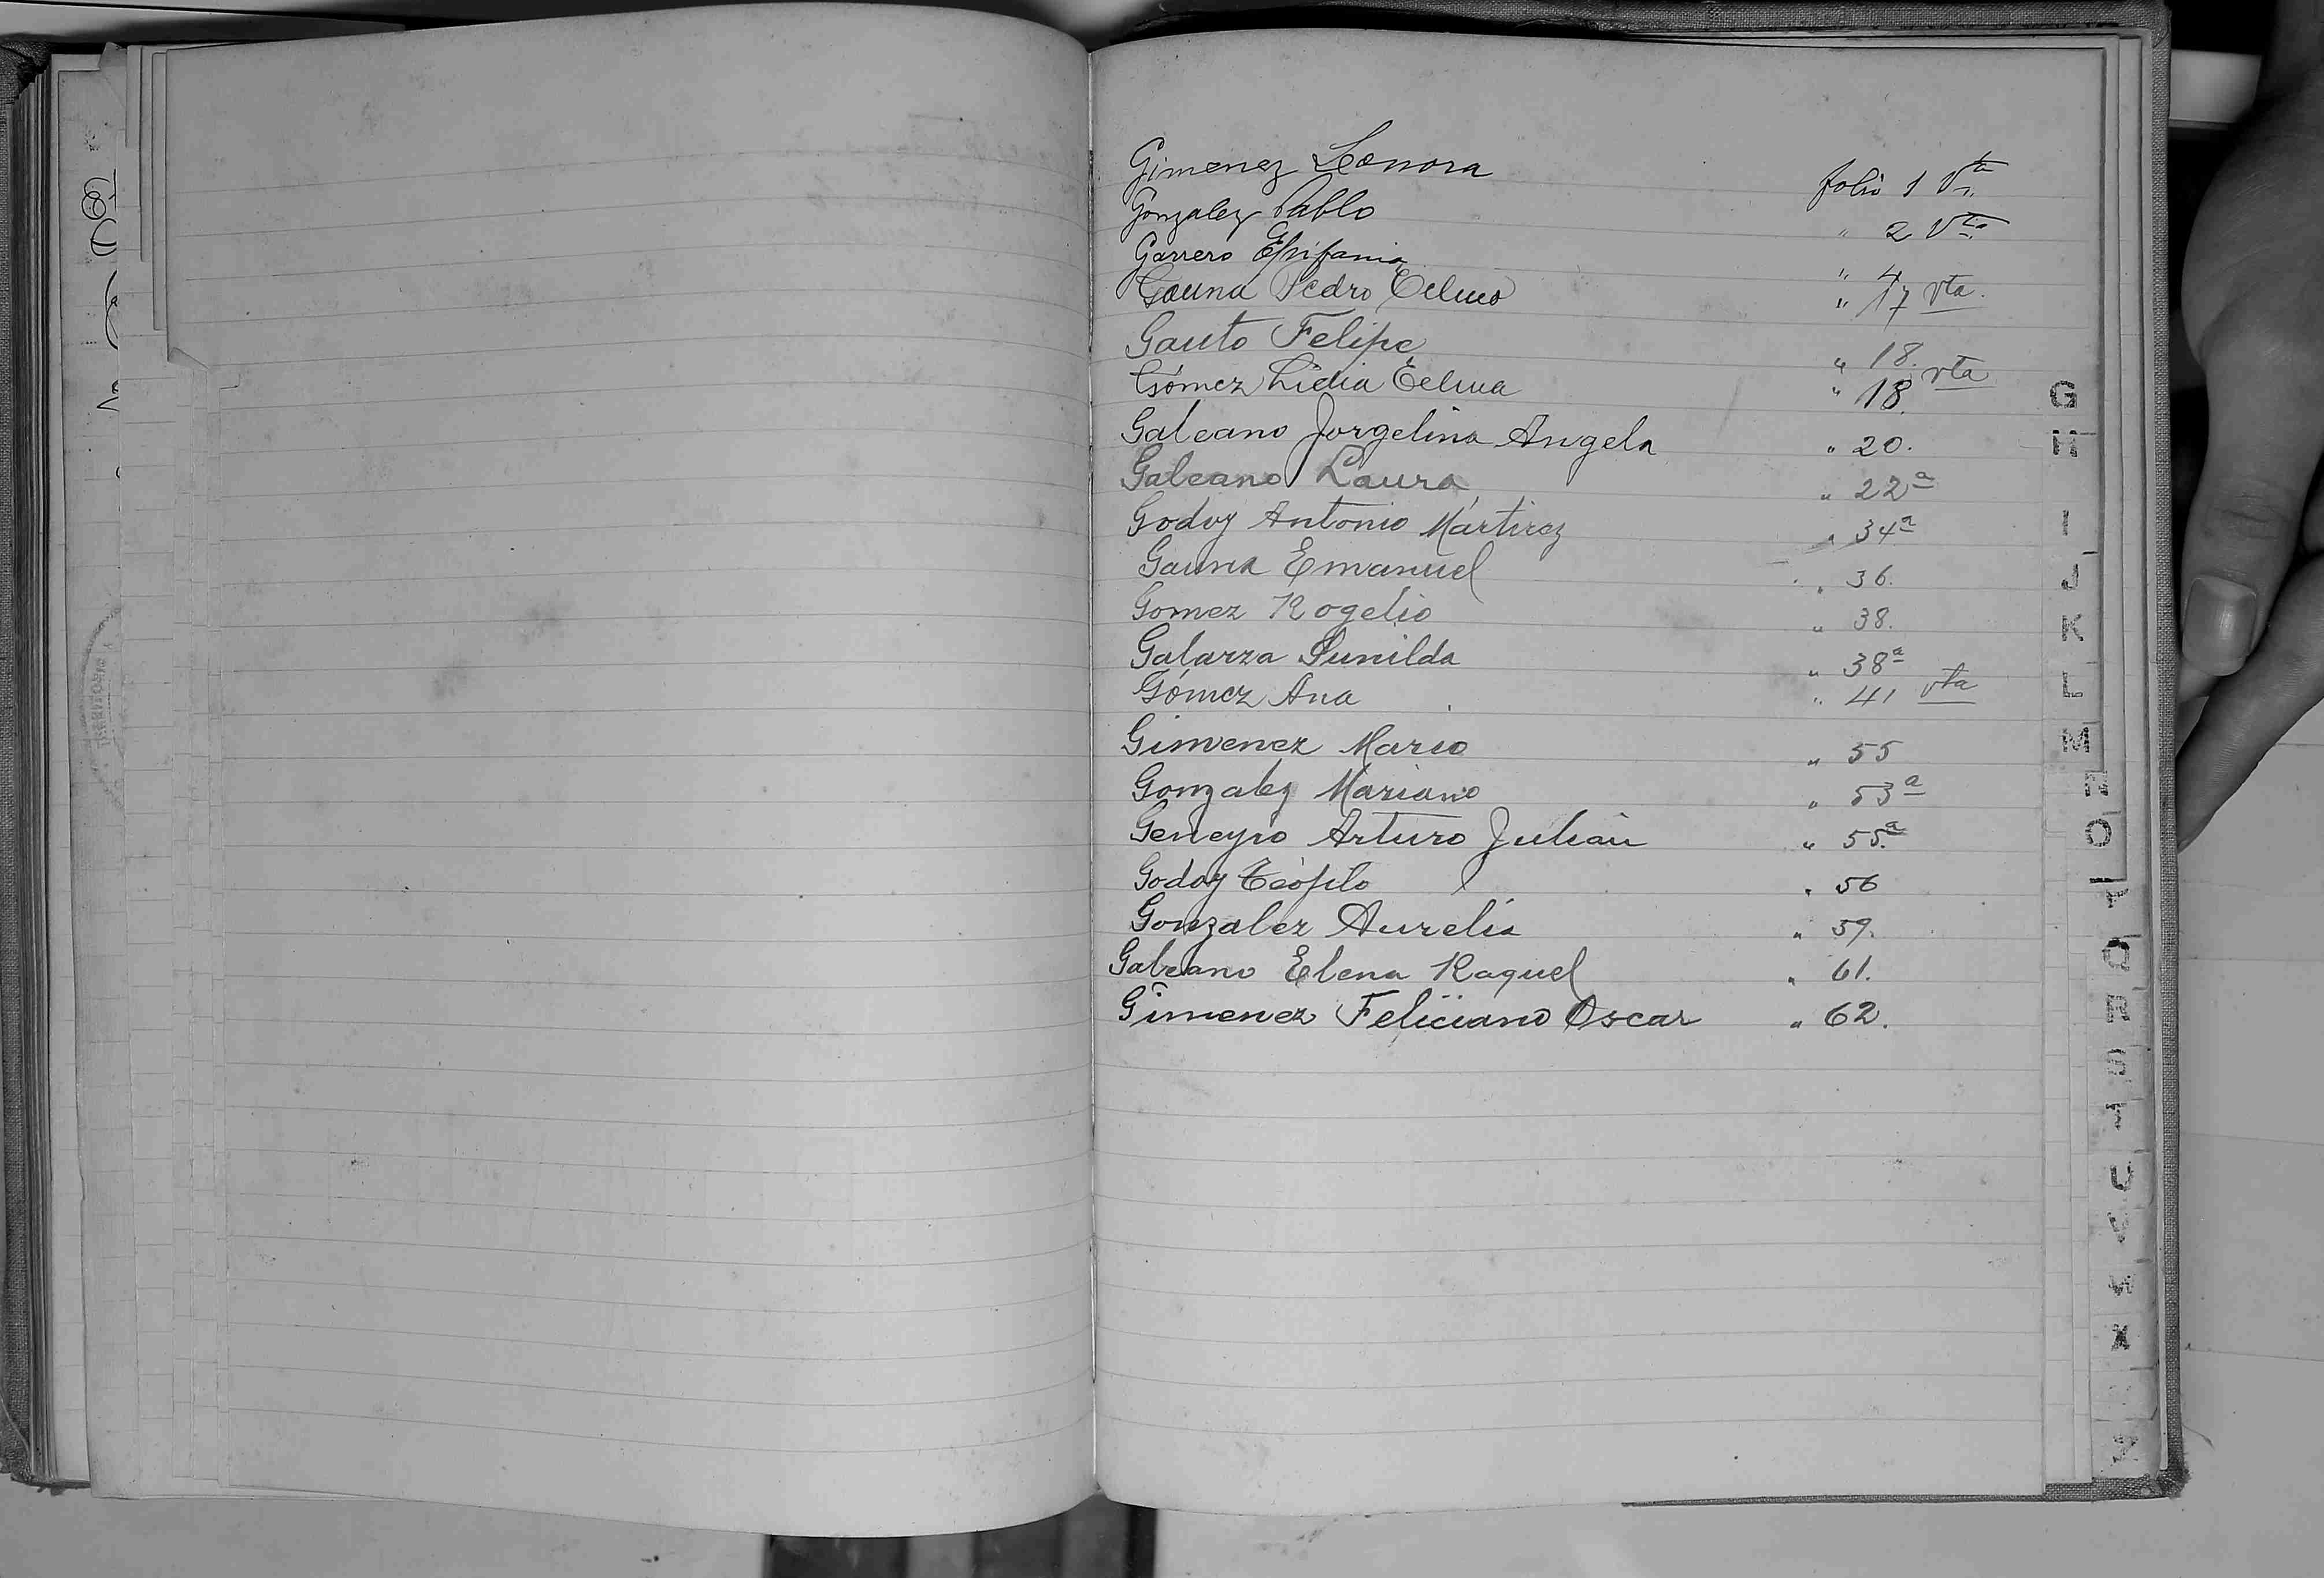 Gimenez Leonora folio 1 Vta
Gonzalez Pablo " 2 Vta
Garrero Epifania " 4
Gauna Pedro Celmo " 17 vta.
Gauto Felipe " 18.
Gómez Lidia Celma " 18. vta
Galeano Jorgelina Angela " 20.
Galeano Laura " 22ª
Godoy Antonio Mártirez " 34ª
Gauna Emanuel " 36.
Gomez Rogelio " 38.
Galarza Sunilda " 38ª
Gómez Ana " 41 vta
Gimenez Mario " 55
Gonzalez Mariano " 53ª
Geneyro Arturo Julián " 55.ª
Godoy Teófilo " 56
Gonzalez Aurelia " 59.
Galeano Elena Raquel " 61.
Gimenez Feliciano Oscar " 62.
G
H
I
J
K
L
M
N
O
P
Q
R
S
T
U
V
W
X